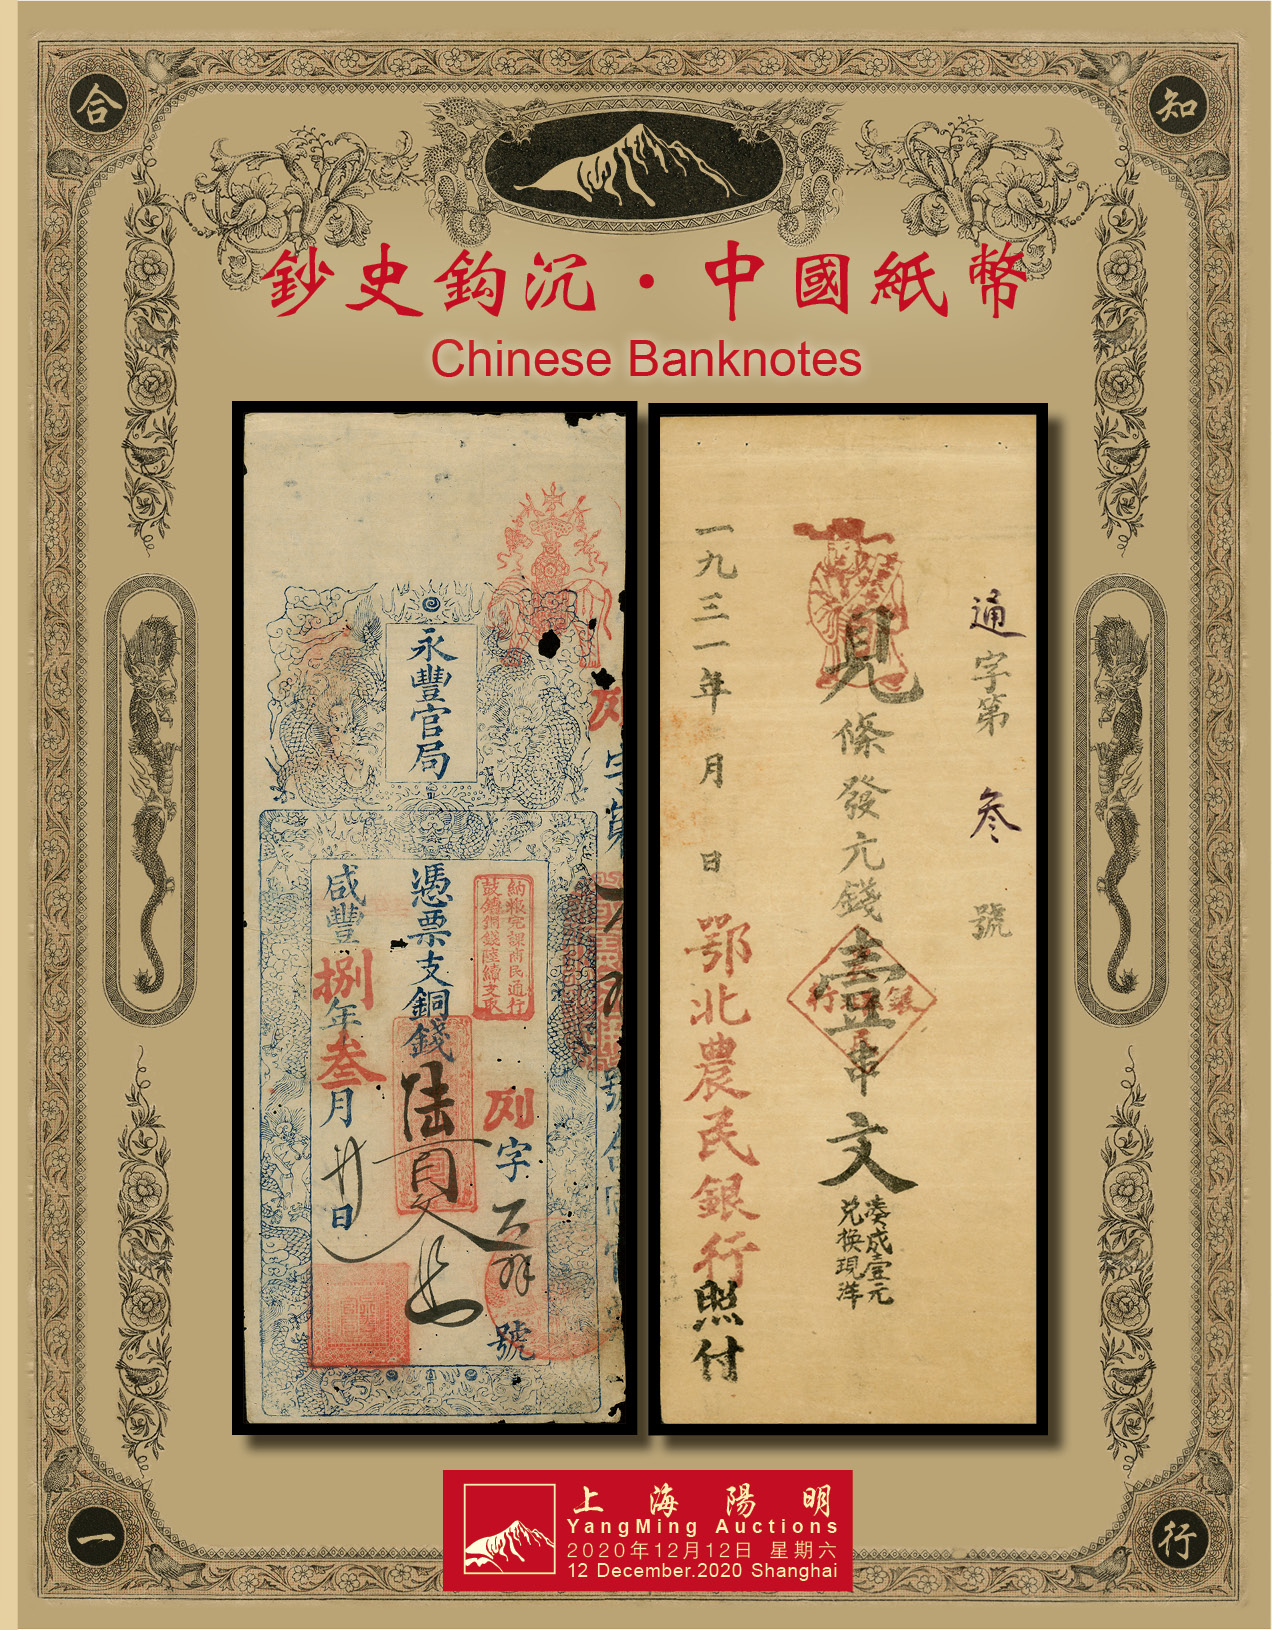 知
行
合
一
鈔史鈎沉·中國紙幣
Chinese Banknotes
永豐官局
納粮完課商民通行
鼓鑄銅錢陸續支取
列字
號
憑票支銅錢陸百文
咸豐捌年叁月廿日
通字第叁號
見條發元錢壹串文
湊成壹元
兌換現洋
一九三一年 月 日
鄂北農民銀行照付
上海陽明
YangMing Auctions
2020年12月12日 星期六
12 December.2020 Shanghai